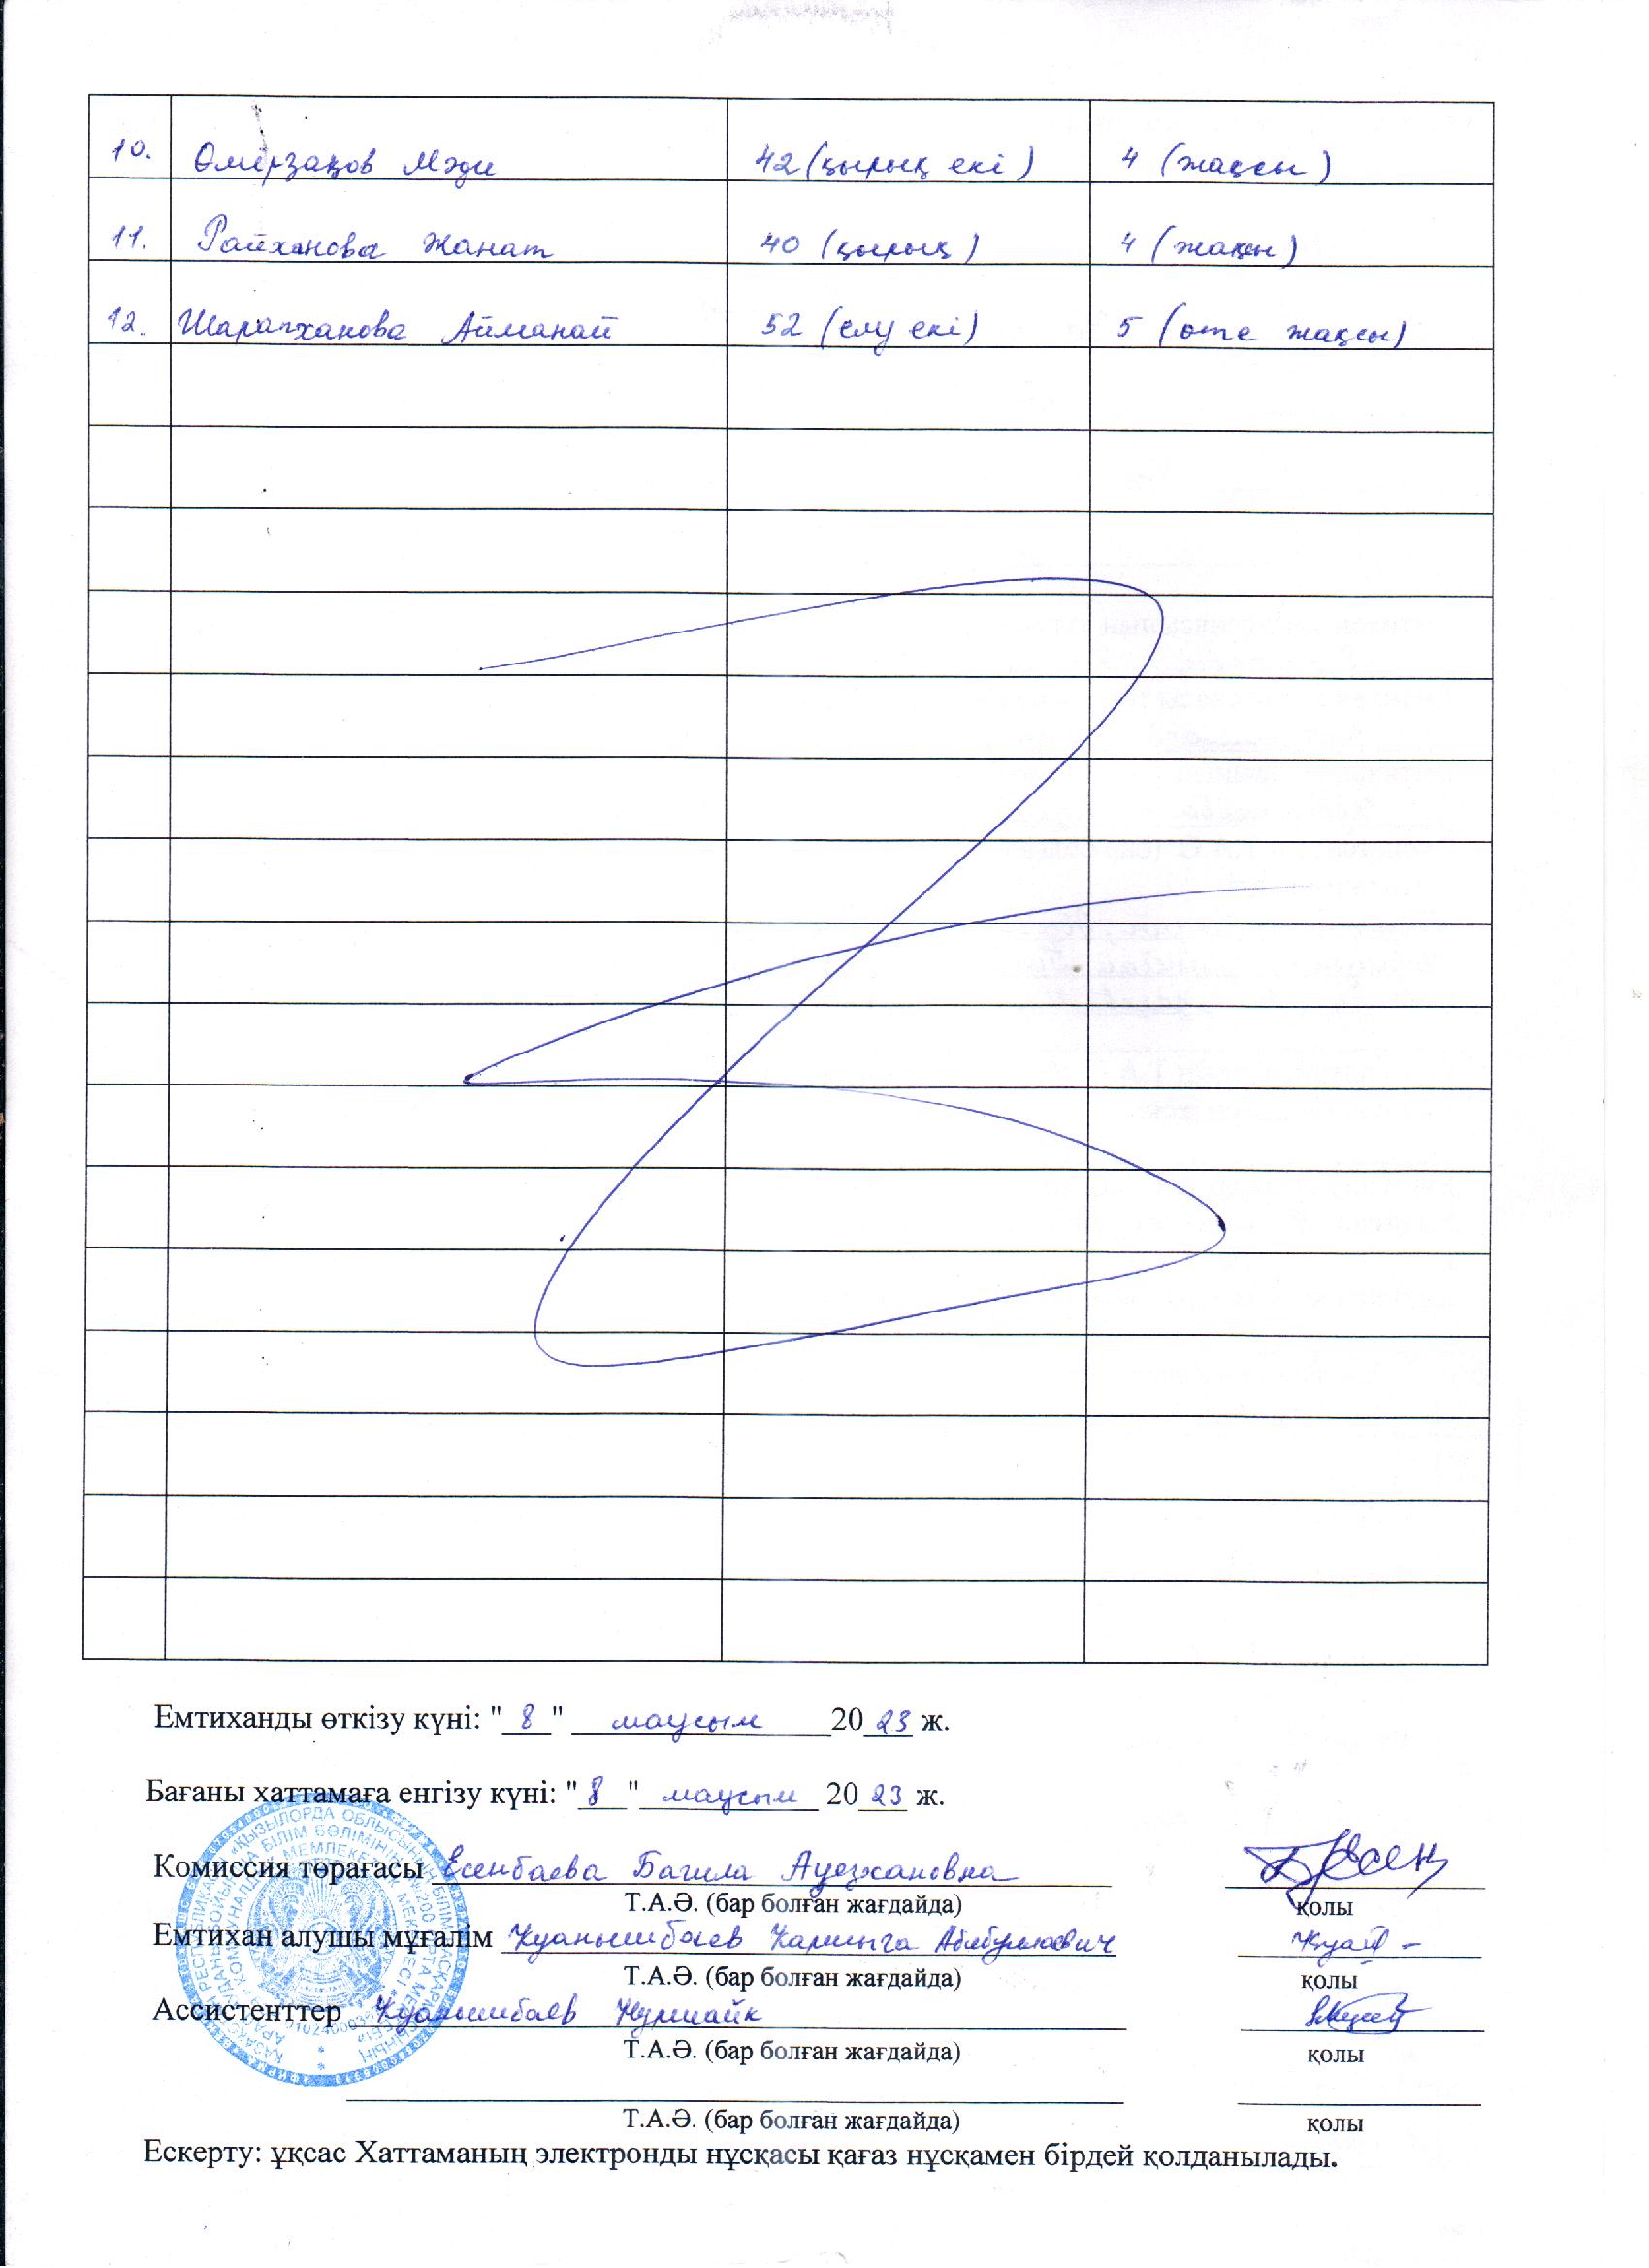 10. Өмірзақов Мәди 42 (қырық екі) 4 (жақсы)
11. Райханова Жанат 40 (қырық) 4 (жақсы)
12. Шарапханова Айманай 52 (елу екі) 5 (өте жақсы)
Емтиханды өткізу күні: "8" маусым 2023 ж.
Бағаны хаттамаға енгізу күні: "8" маусым 2023 ж.
Комиссия төрағасы Есенбаева Багила Ауезхановна
Т.А.Ә. (бар болған жағдайда) қолы
Емтихан алушы мұғалім Куанышбаев
Т.А.Ә. (бар болған жағдайда) қолы
Ассистенттер Куанышбаев
Т.А.Ә. (бар болған жағдайда) қолы
Т.А.Ә. (бар болған жағдайда) қолы
Ескерту: ұқсас Хаттаманың электронды нұсқасы қағаз нұсқамен бірдей қолданылады.